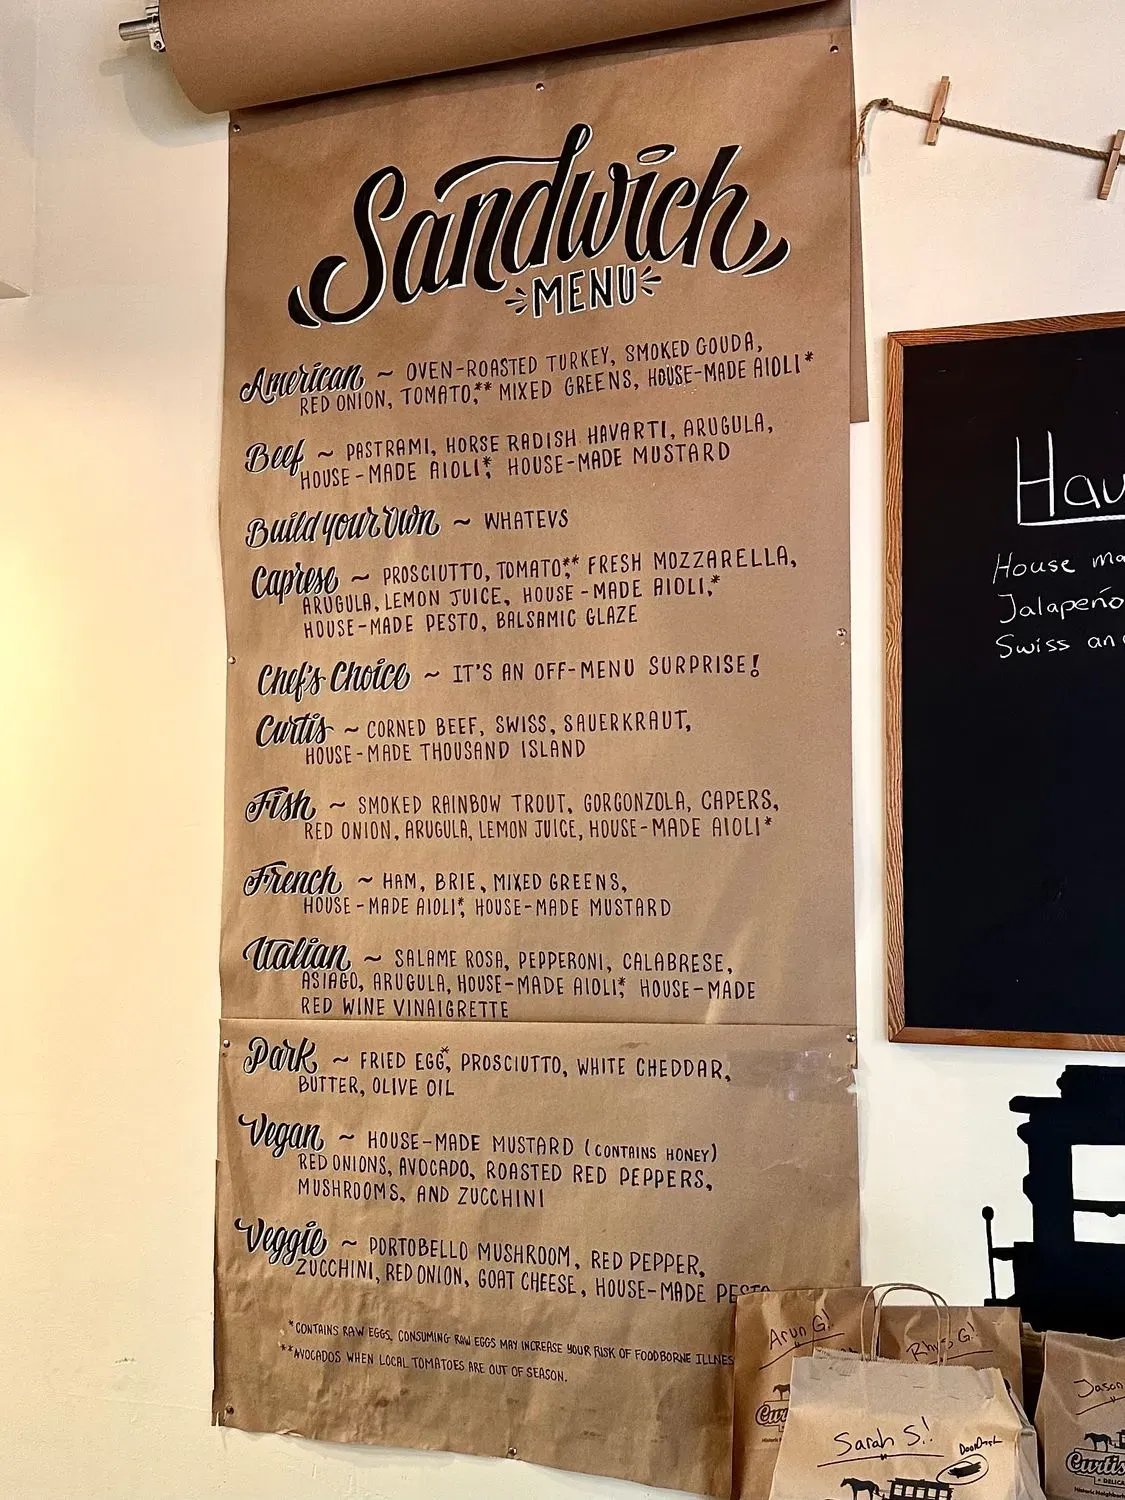 Sandwich
MENU
American ~ OVEN-ROASTED TURKEY, SMOKED GOUDA,
RED ONION, TOMATO,** MIXED GREENS, HOUSE-MADE AIOLI*
Beef ~ PASTRAMI, HORSE RADISH HAVARTI, ARUGULA,
HOUSE-MADE AIOLI,* HOUSE-MADE MUSTARD
Build your Own ~ WHATEVS
Caprese ~ PROSCIUTTO, TOMATO,** FRESH MOZZARELLA,
ARUGULA, LEMON JUICE, HOUSE-MADE AIOLI,*
HOUSE-MADE PESTO, BALSAMIC GLAZE
Chef's Choice ~ IT'S AN OFF-MENU SURPRISE!
Curtis ~ CORNED BEEF, SWISS, SAUERKRAUT,
HOUSE-MADE THOUSAND ISLAND
Fish ~ SMOKED RAINBOW TROUT, GORGONZOLA, CAPERS,
RED ONION, ARUGULA, LEMON JUICE, HOUSE-MADE AIOLI*
French ~ HAM, BRIE, MIXED GREENS,
HOUSE-MADE AIOLI,* HOUSE-MADE MUSTARD
Italian ~ SALAME ROSA, PEPPERONI, CALABRESE,
ASIAGO, ARUGULA, HOUSE-MADE AIOLI,* HOUSE-MADE
RED WINE VINAIGRETTE
Park ~ FRIED EGG,* PROSCIUTTO, WHITE CHEDDAR,
BUTTER, OLIVE OIL
Vegan ~ HOUSE-MADE MUSTARD (CONTAINS HONEY)
RED ONIONS, AVOCADO, ROASTED RED PEPPERS,
MUSHROOMS, AND ZUCCHINI
Veggie ~ PORTOBELLO MUSHROOM, RED PEPPER,
ZUCCHINI, RED ONION, GOAT CHEESE, HOUSE-MADE PESTO
*CONTAINS RAW EGGS. CONSUMING RAW EGGS MAY INCREASE YOUR RISK OF FOODBORNE ILLNES
**AVOCADOS WHEN LOCAL TOMATOES ARE OUT OF SEASON.
Hau
House ma
Jalapeño
Swiss an
Arun G!
Rhys G!
Jason
Sarah S!
DoorDash
Cur
Curtis
DELICA
Historic Neighborh